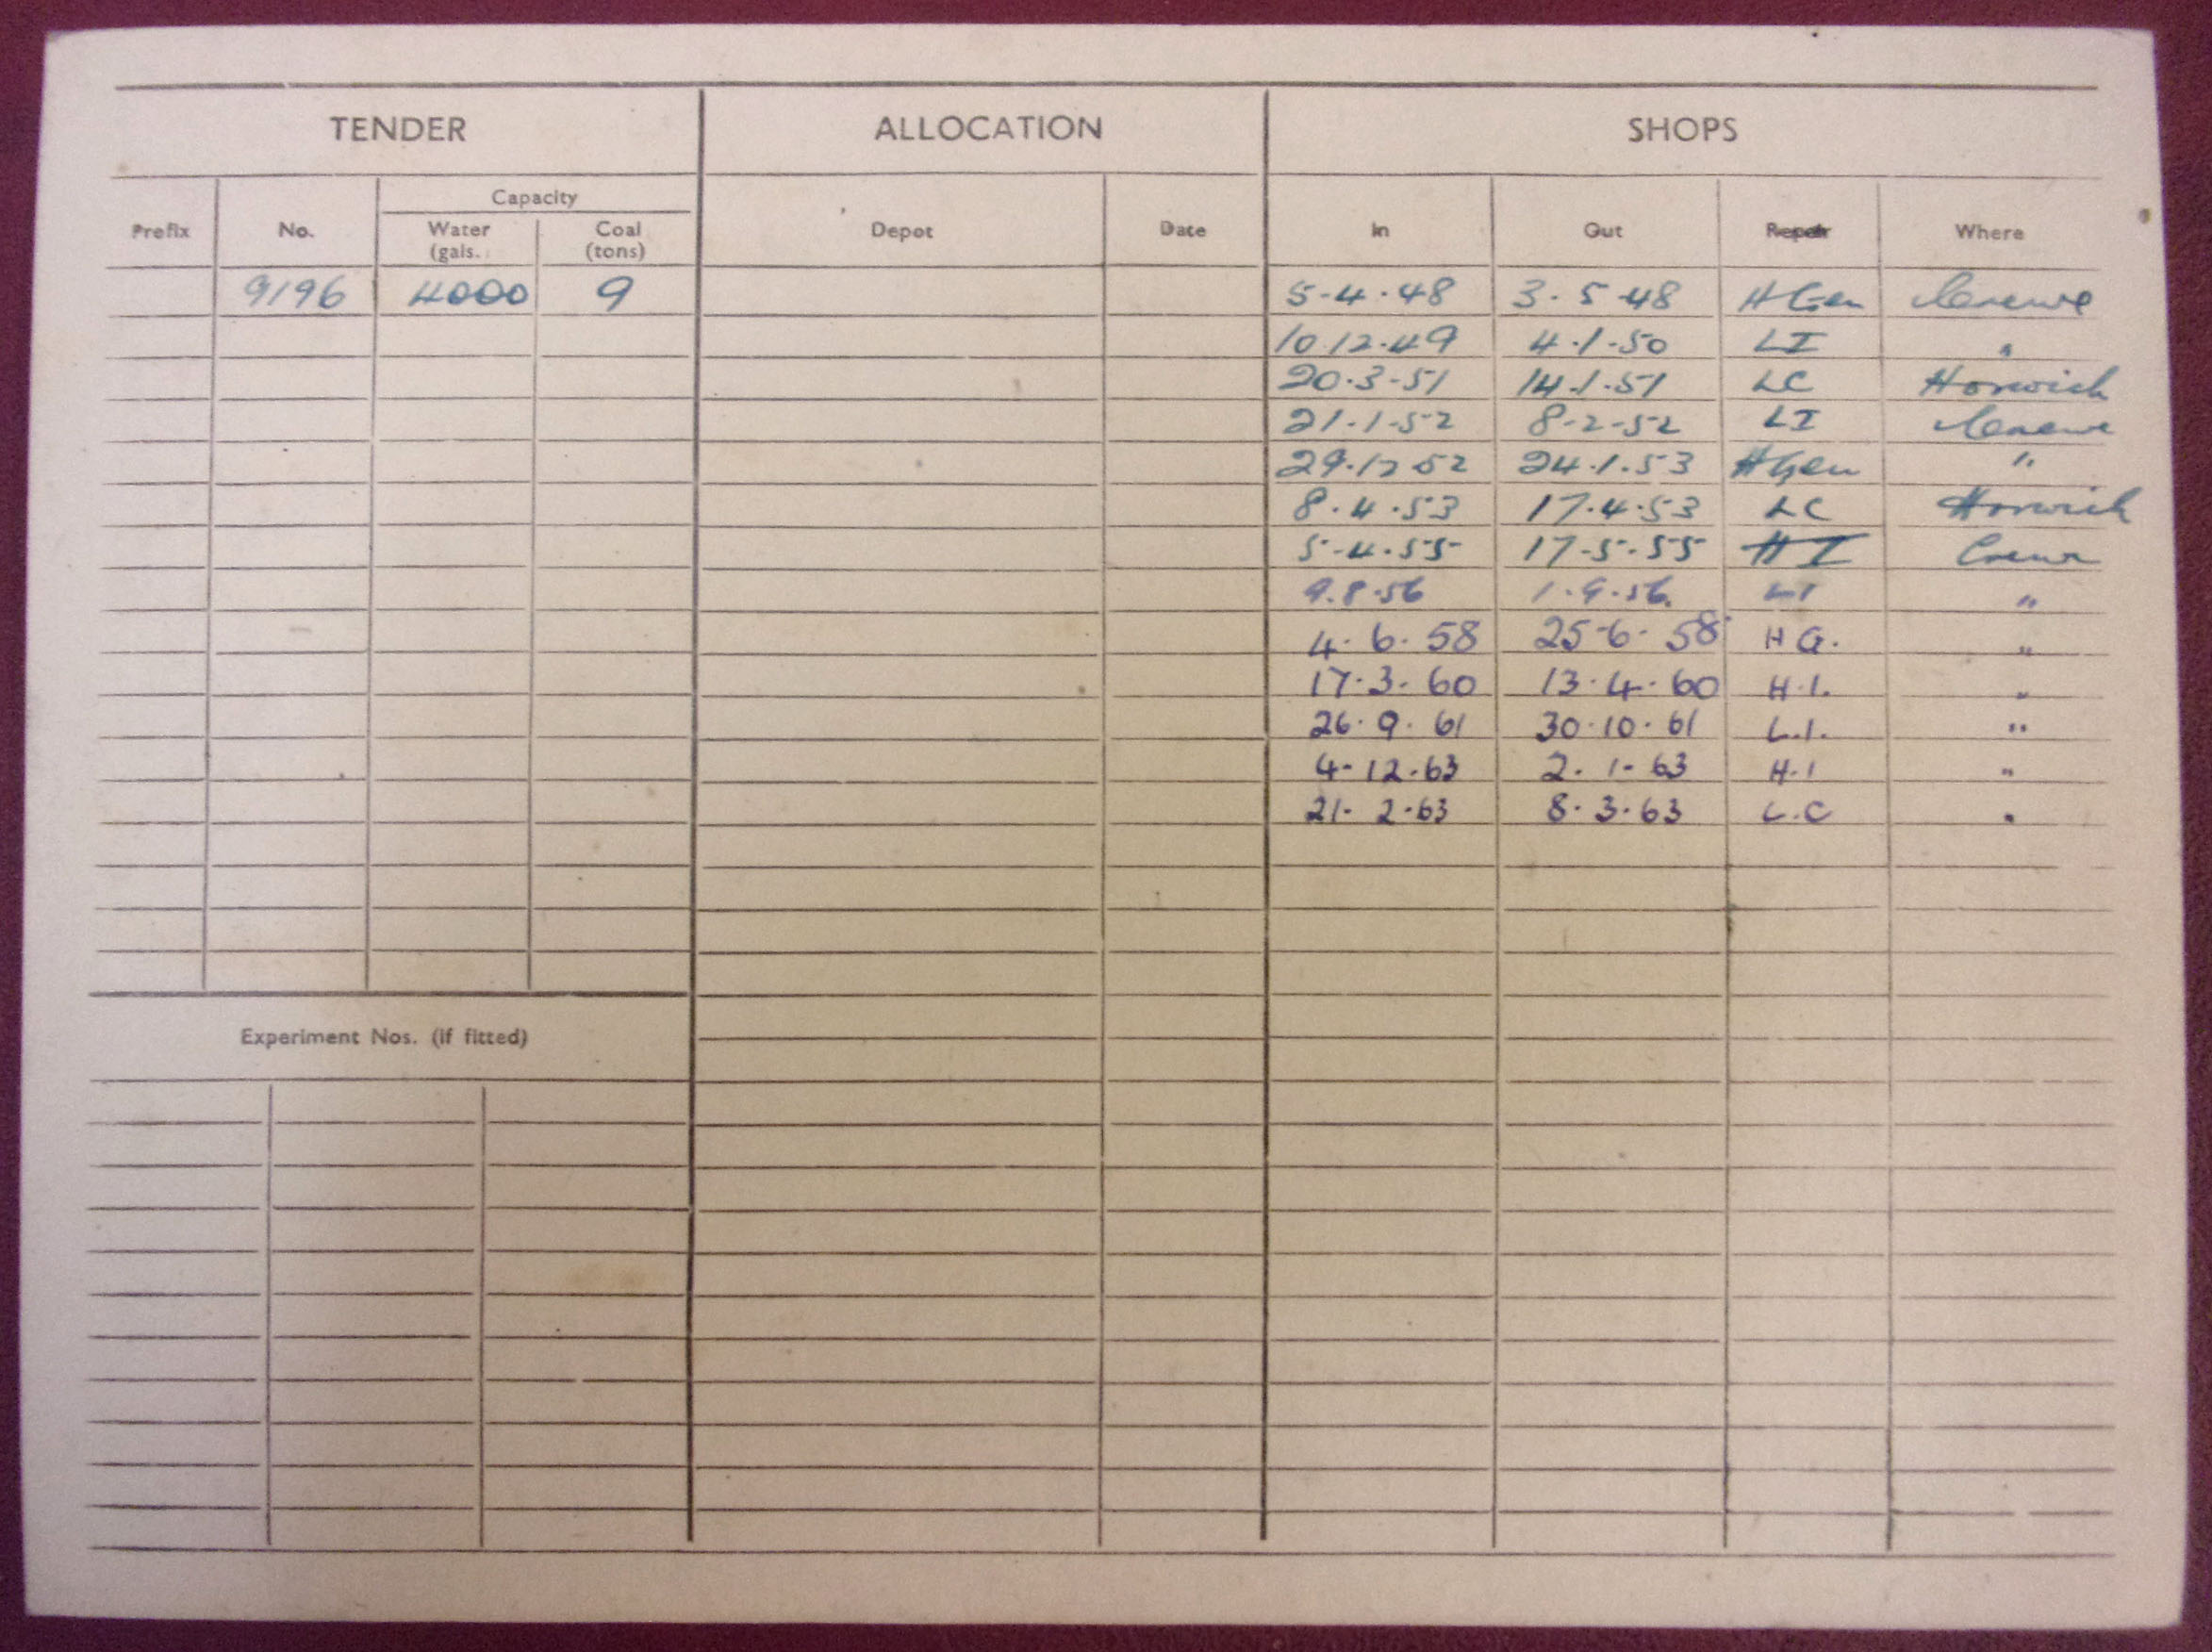 TENDER ALLOCATION SHOPS
Capacity
Prefix No. Water (gals. Coal (tons) Depot Date In Out Repair Where
9196 4000 9 5-4-48 3.5.48 HGen Crewe
10.12.49 4.1.50 LI "
20.3.51 14.1.51 LC Horwich
21.1.52 8-2-52 LI Crewe
29.12.52 24.1.53 HGen "
8.4.53 17.4.53 LC Horwich
5-4.55 17-5.55 HI Crewe
9.8.56 1.9.56. LI "
4.6.58 25-6-58 H G. "
17.3.60 13.4.60 H.I. "
26.9.61 30.10.61 L.I. "
4-12.63 2.1-63 H.I "
21-2.63 8.3.63 L.C "
Experiment Nos. (if fitted)